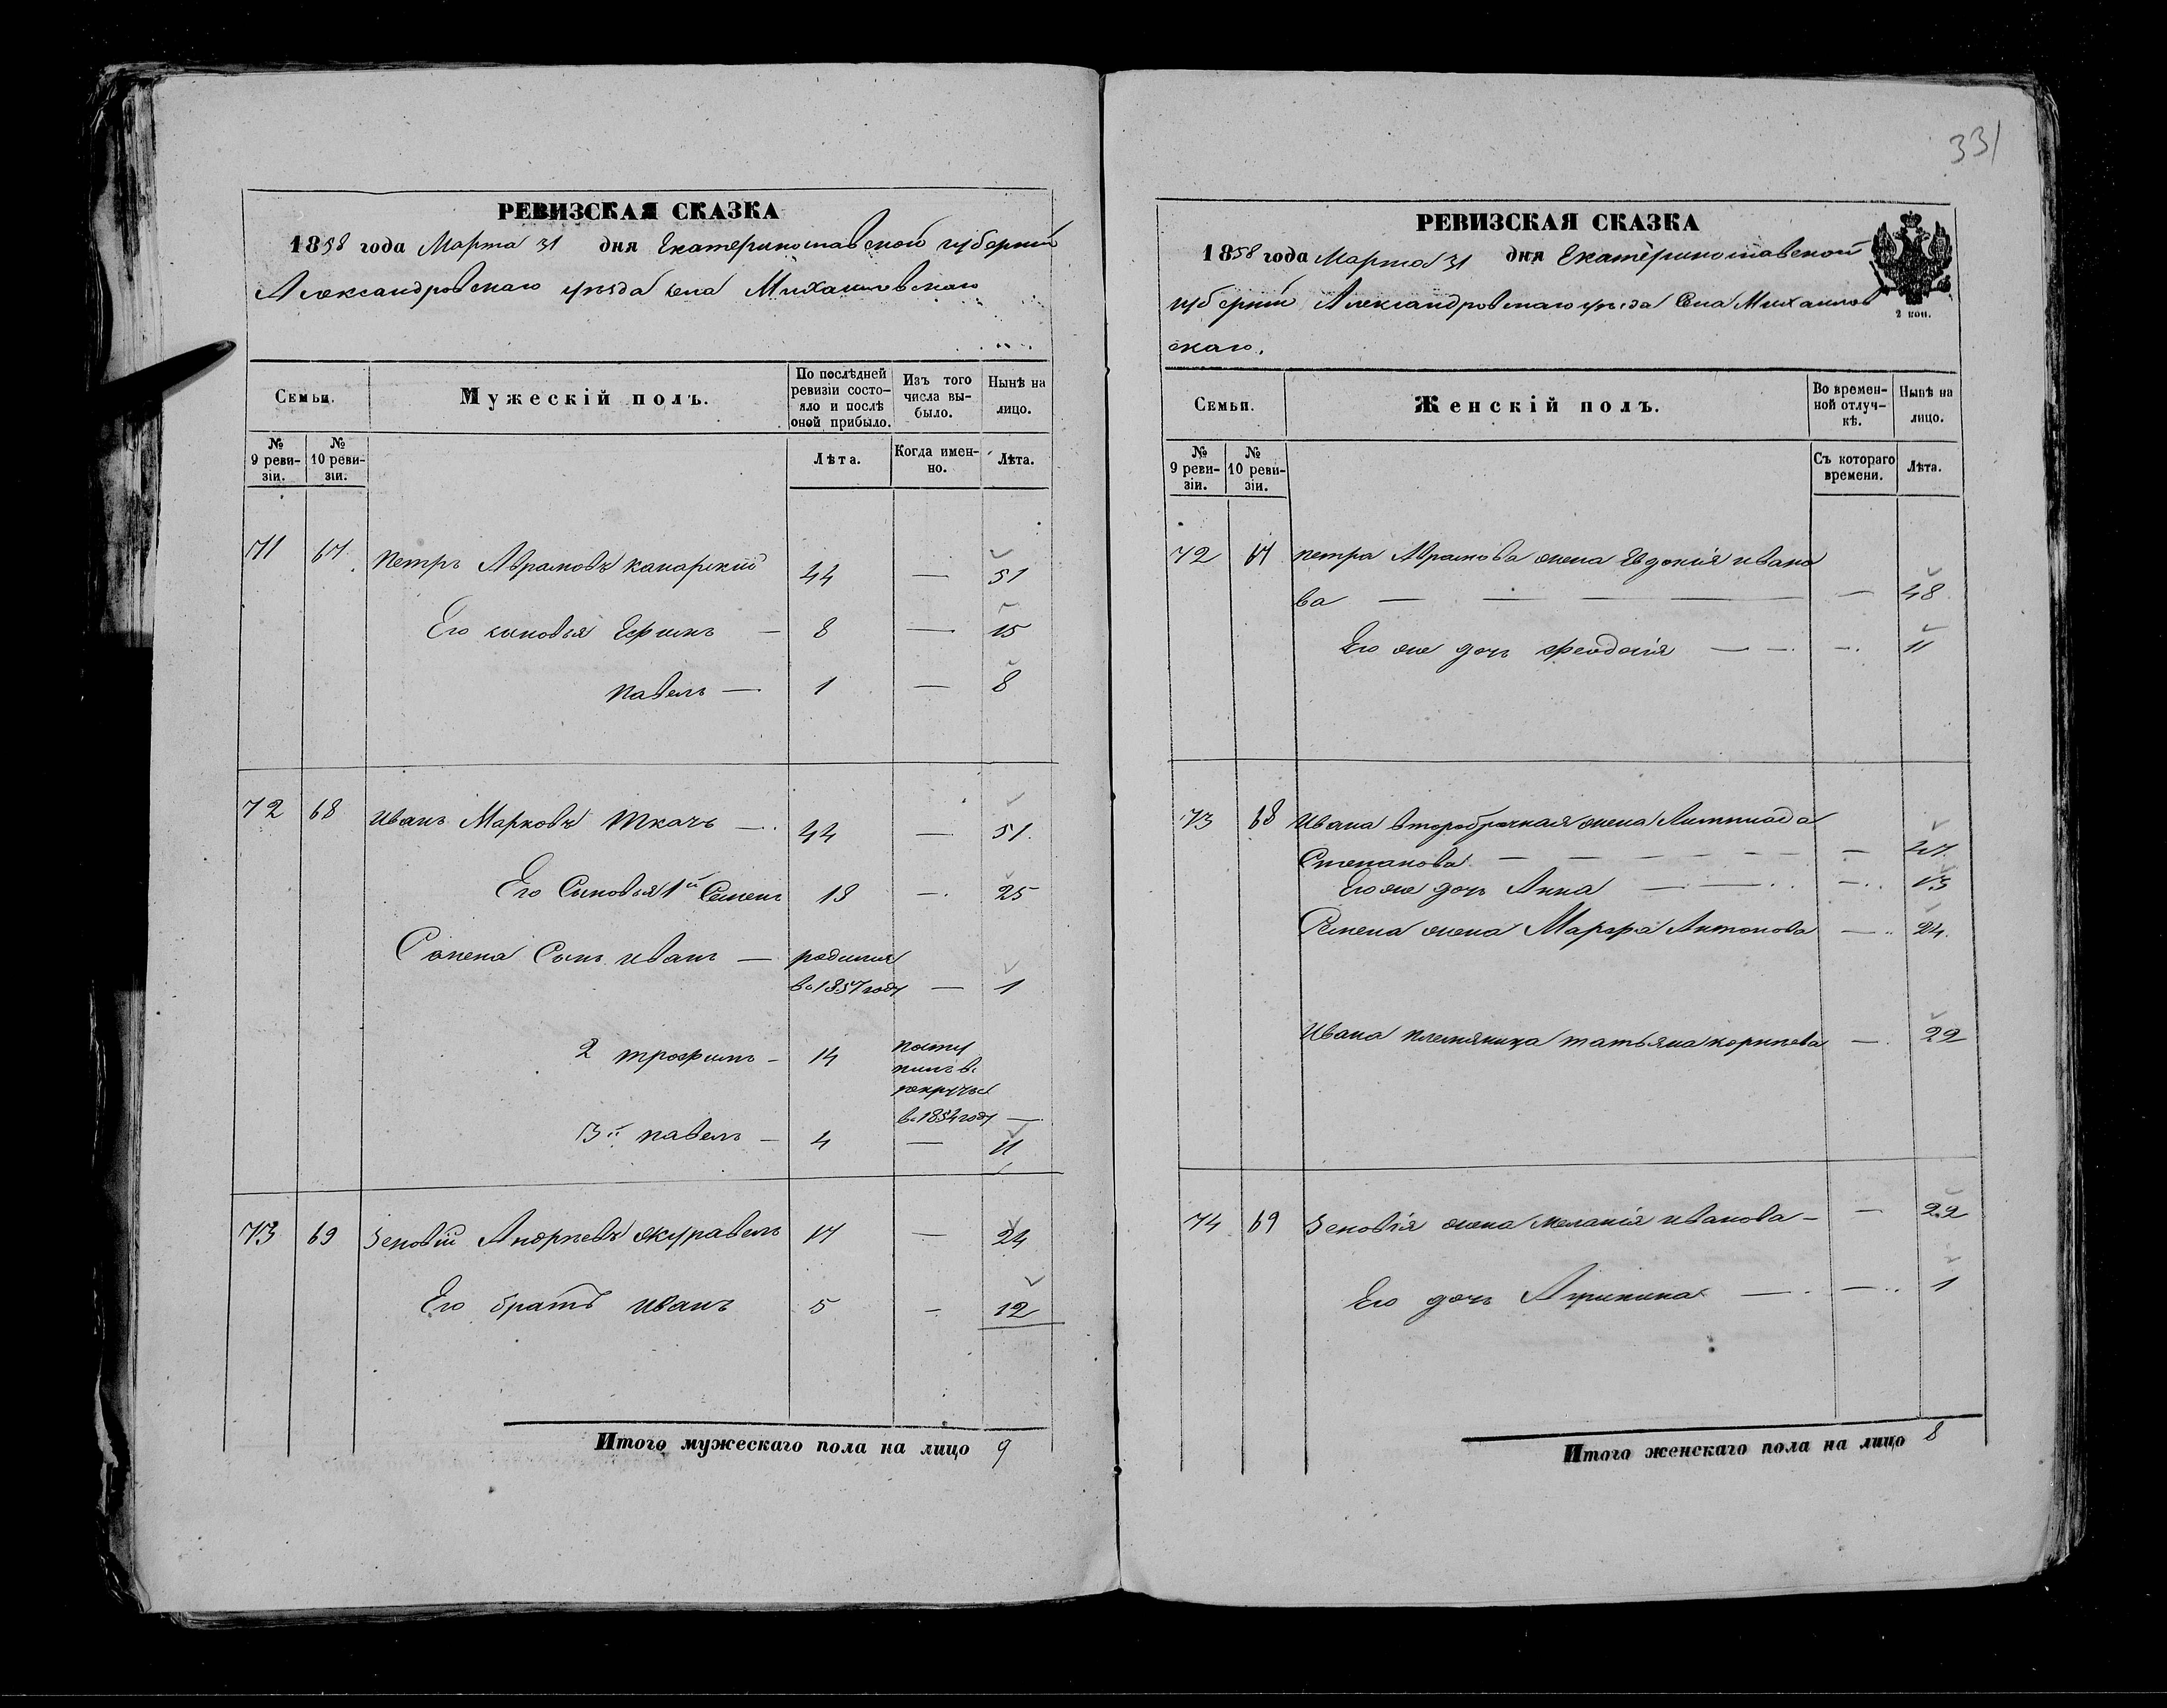 331
РЕВИЗСКАЯ СКАЗКА
1858 года Марта 31 дня Екатеринославской губернии
Александровскаго уѣзда села Михайловскаго
Семьи.
Мужескій полъ.
По послѣдней ревизіи состояло и послѣ оной прибыло.
Изъ того числа выбыло.
Нынѣ на лицо.
№ 9 ревизіи.
№ 10 ревизіи.
Лѣта.
Когда именно.
Лѣта.
71 67 Петръ Аврамовъ 44 — 51
Его сыновья Ефимъ — 8 — 15
Павелъ — 1 — 8
72 68 Иванъ Марковъ Ткачъ — 44 — 51
Его Сыновья 1й Семенъ 18 — 25
Семена Сынъ Иванъ — родился
въ 1857 году — 1
2 Трофимъ — 14 посту
пилъ въ
рекруты
въ 1854 году —
3й Павелъ — 4 — 11
73 69 Зеновій Андреевъ Журавель 17 — 24
Его братъ Иванъ 5 — 12
Итого мужескаго пола на лицо 9
РЕВИЗСКАЯ СКАЗКА
1858 года Марта 31 дня Екатеринославской
губерніи Александровскаго уѣзда Села Михайлов
скаго.
2 коп.
Семьи.
Женскій полъ.
Во временной отлучкѣ.
Нынѣ на лицо.
№ 9 ревизіи.
№ 10 ревизіи.
Съ котораго времени.
Лѣта.
72 67 Петра Аврамова жена Евдокія Ивано
ва — — — — — 48
Его же дочь Феодосія — — — 11
73 68 Ивана второбрачная жена Лимпиада
Степанова — — — — — — — 47
Его же дочь Анна — — — 13
Семена жена Марфа Антонова — 24
Ивана племяница Татьяна — 22
74 69 Зеновія жена Меланія Иванова — — 22
Его дочь — — 1
Итого женскаго пола на лицо 8